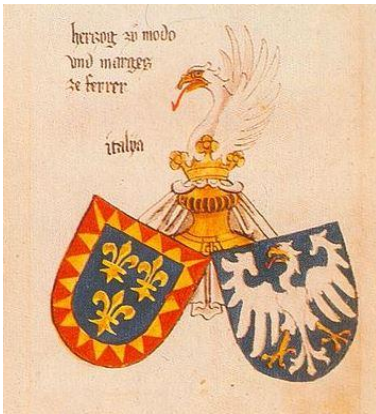 herzog zů modo
vnd marges
ze ferrer
italya